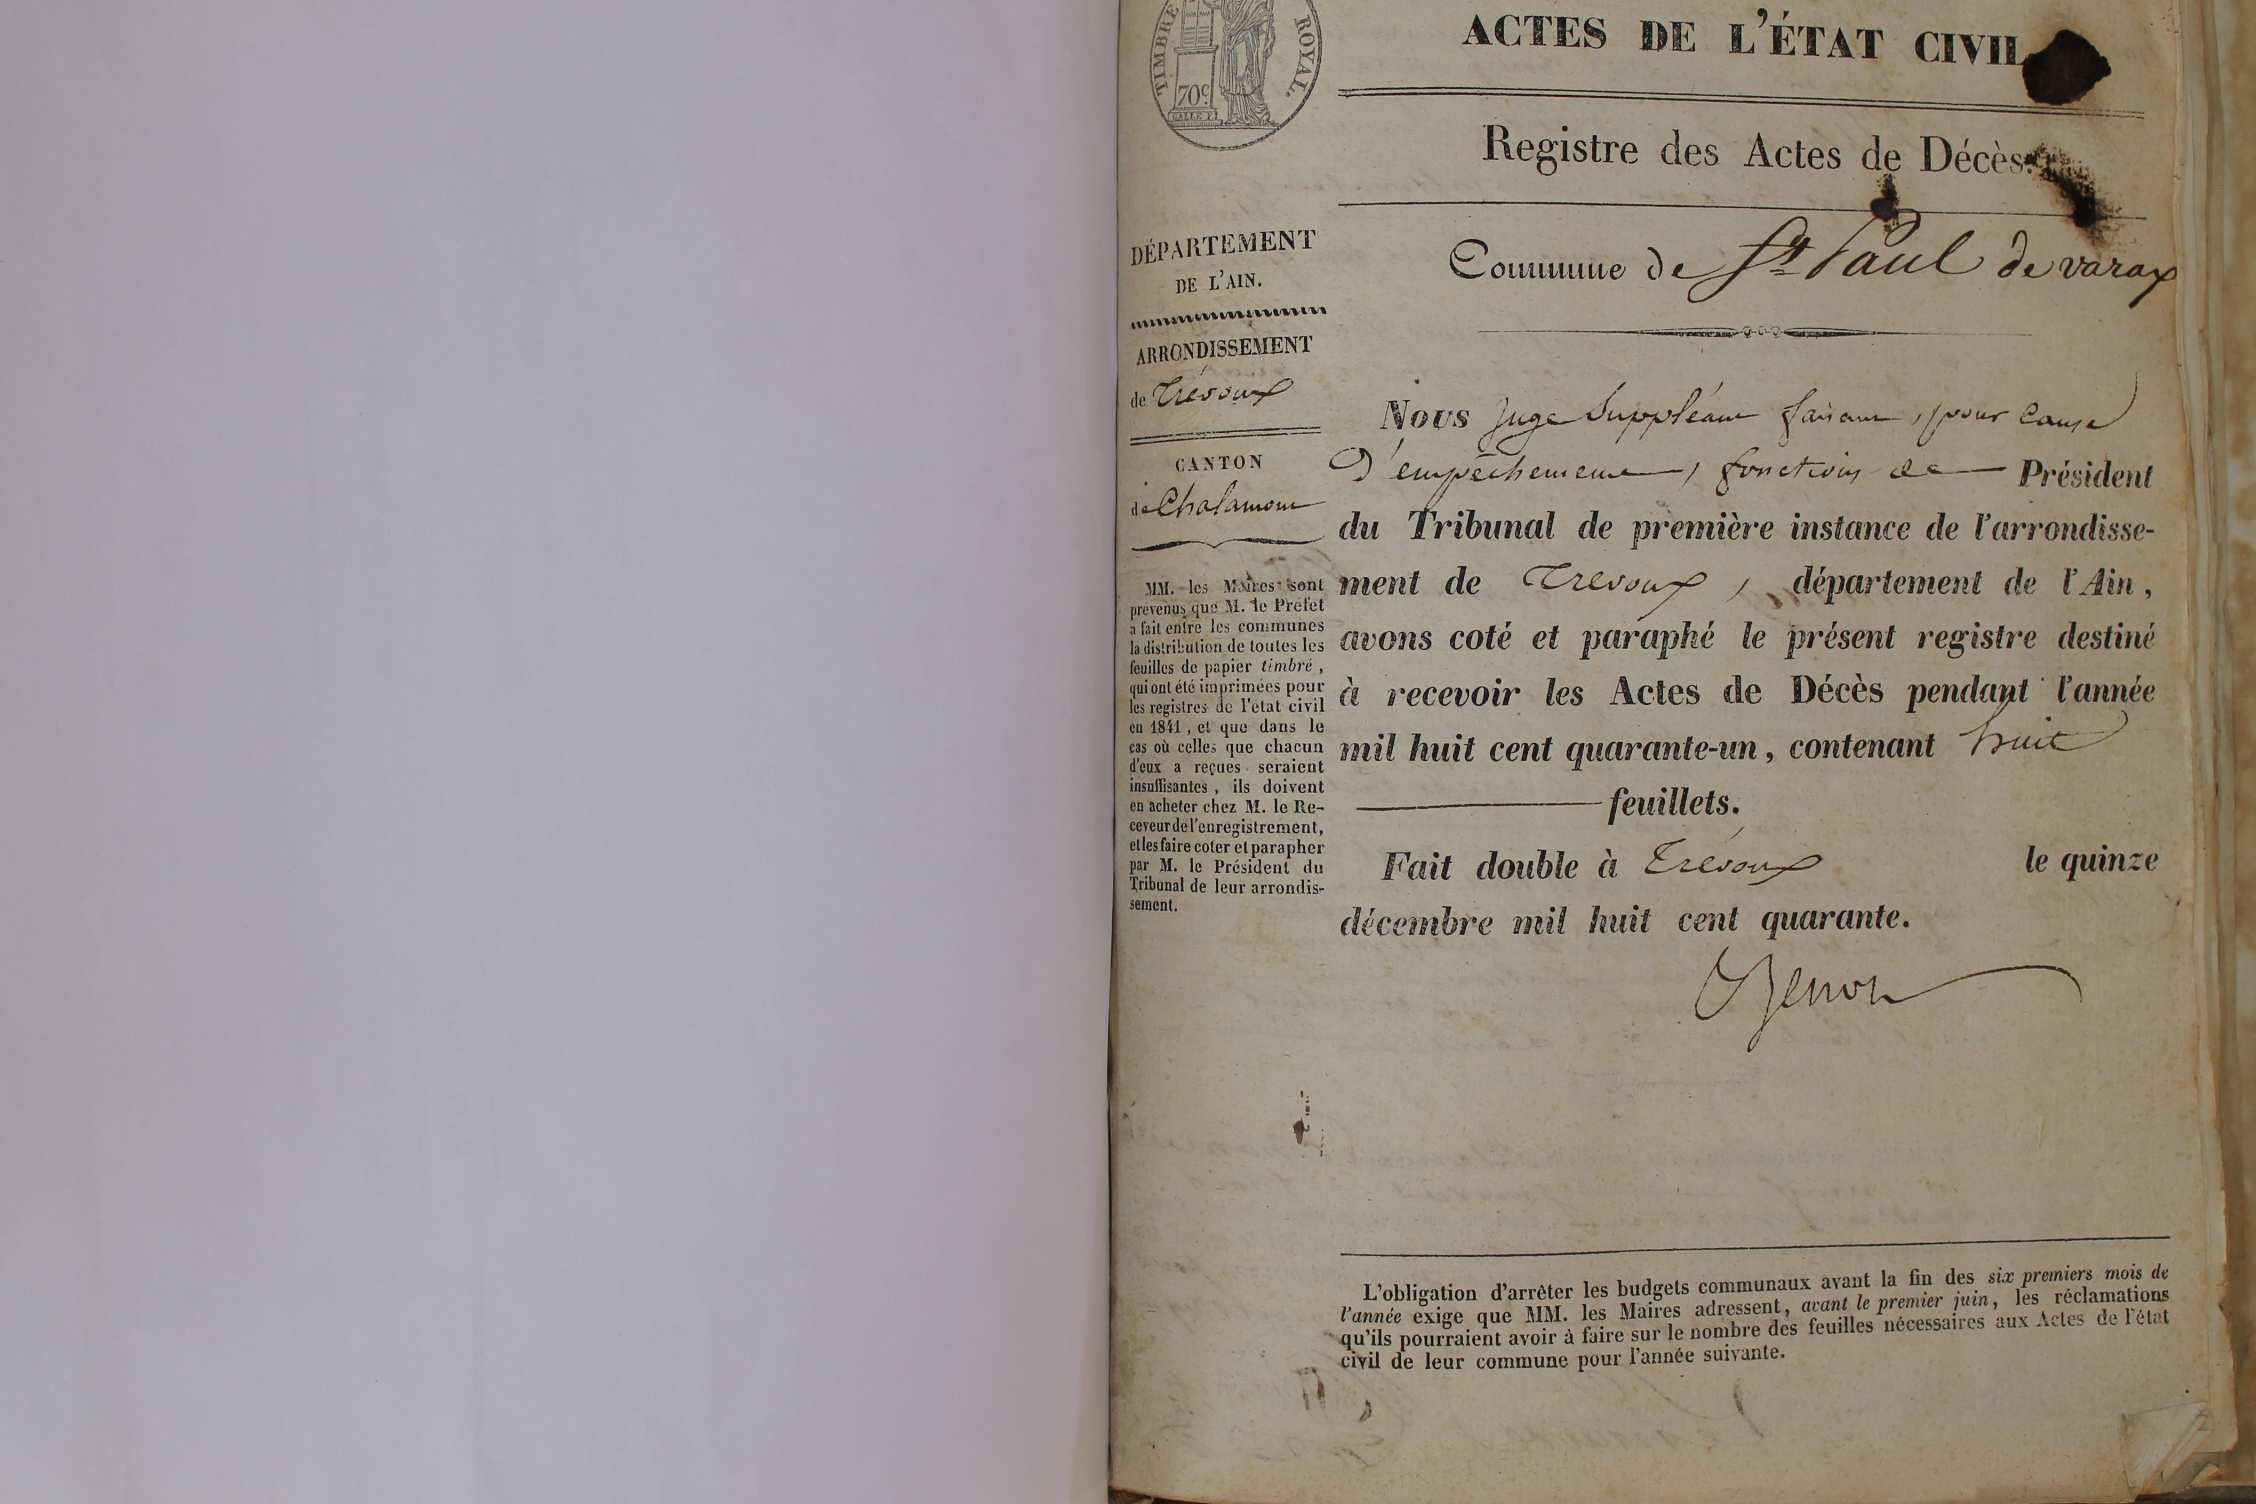 TIMBRE ROYAL.
70c.
ACTES DE L'ÉTAT CIVIL
Registre des Actes de Décès.
Commune de St Paul de varax
DÉPARTEMENT
DE L'AIN.
ARRONDISSEMENT
de Trévoux
CANTON
de Chalamont
MM. les Maires sont
prévenus que M. le Préfet
a fait entre les communes
la distribution de toutes les
feuilles de papier timbré,
qui ont été imprimées pour
les registres de l'état civil
en 1841, et que dans le
cas où celles que chacun
d'eux a reçues seraient
insuffisantes, ils doivent
en acheter chez M. le Re-
ceveur de l'enregistrement,
et les faire coter et parapher
par M. le Président du
Tribunal de leur arrondis-
sement.
Nous Juge Suppléant faisant, pour cause
d'empêchement, fonctions de Président
du Tribunal de première instance de l'arrondisse-
ment de Trévoux, département de l'Ain,
avons coté et paraphé le présent registre destiné
à recevoir les Actes de Décès pendant l'année
mil huit cent quarante-un, contenant huit
feuillets.
Fait double à Trévoux le quinze
décembre mil huit cent quarante.
L'obligation d'arrêter les budgets communaux avant la fin des six premiers mois de
l'année exige que MM. les Maires adressent, avant le premier juin, les réclamations
qu'ils pourraient avoir à faire sur le nombre des feuilles nécessaires aux Actes de l'état
civil de leur commune pour l'année suivante.